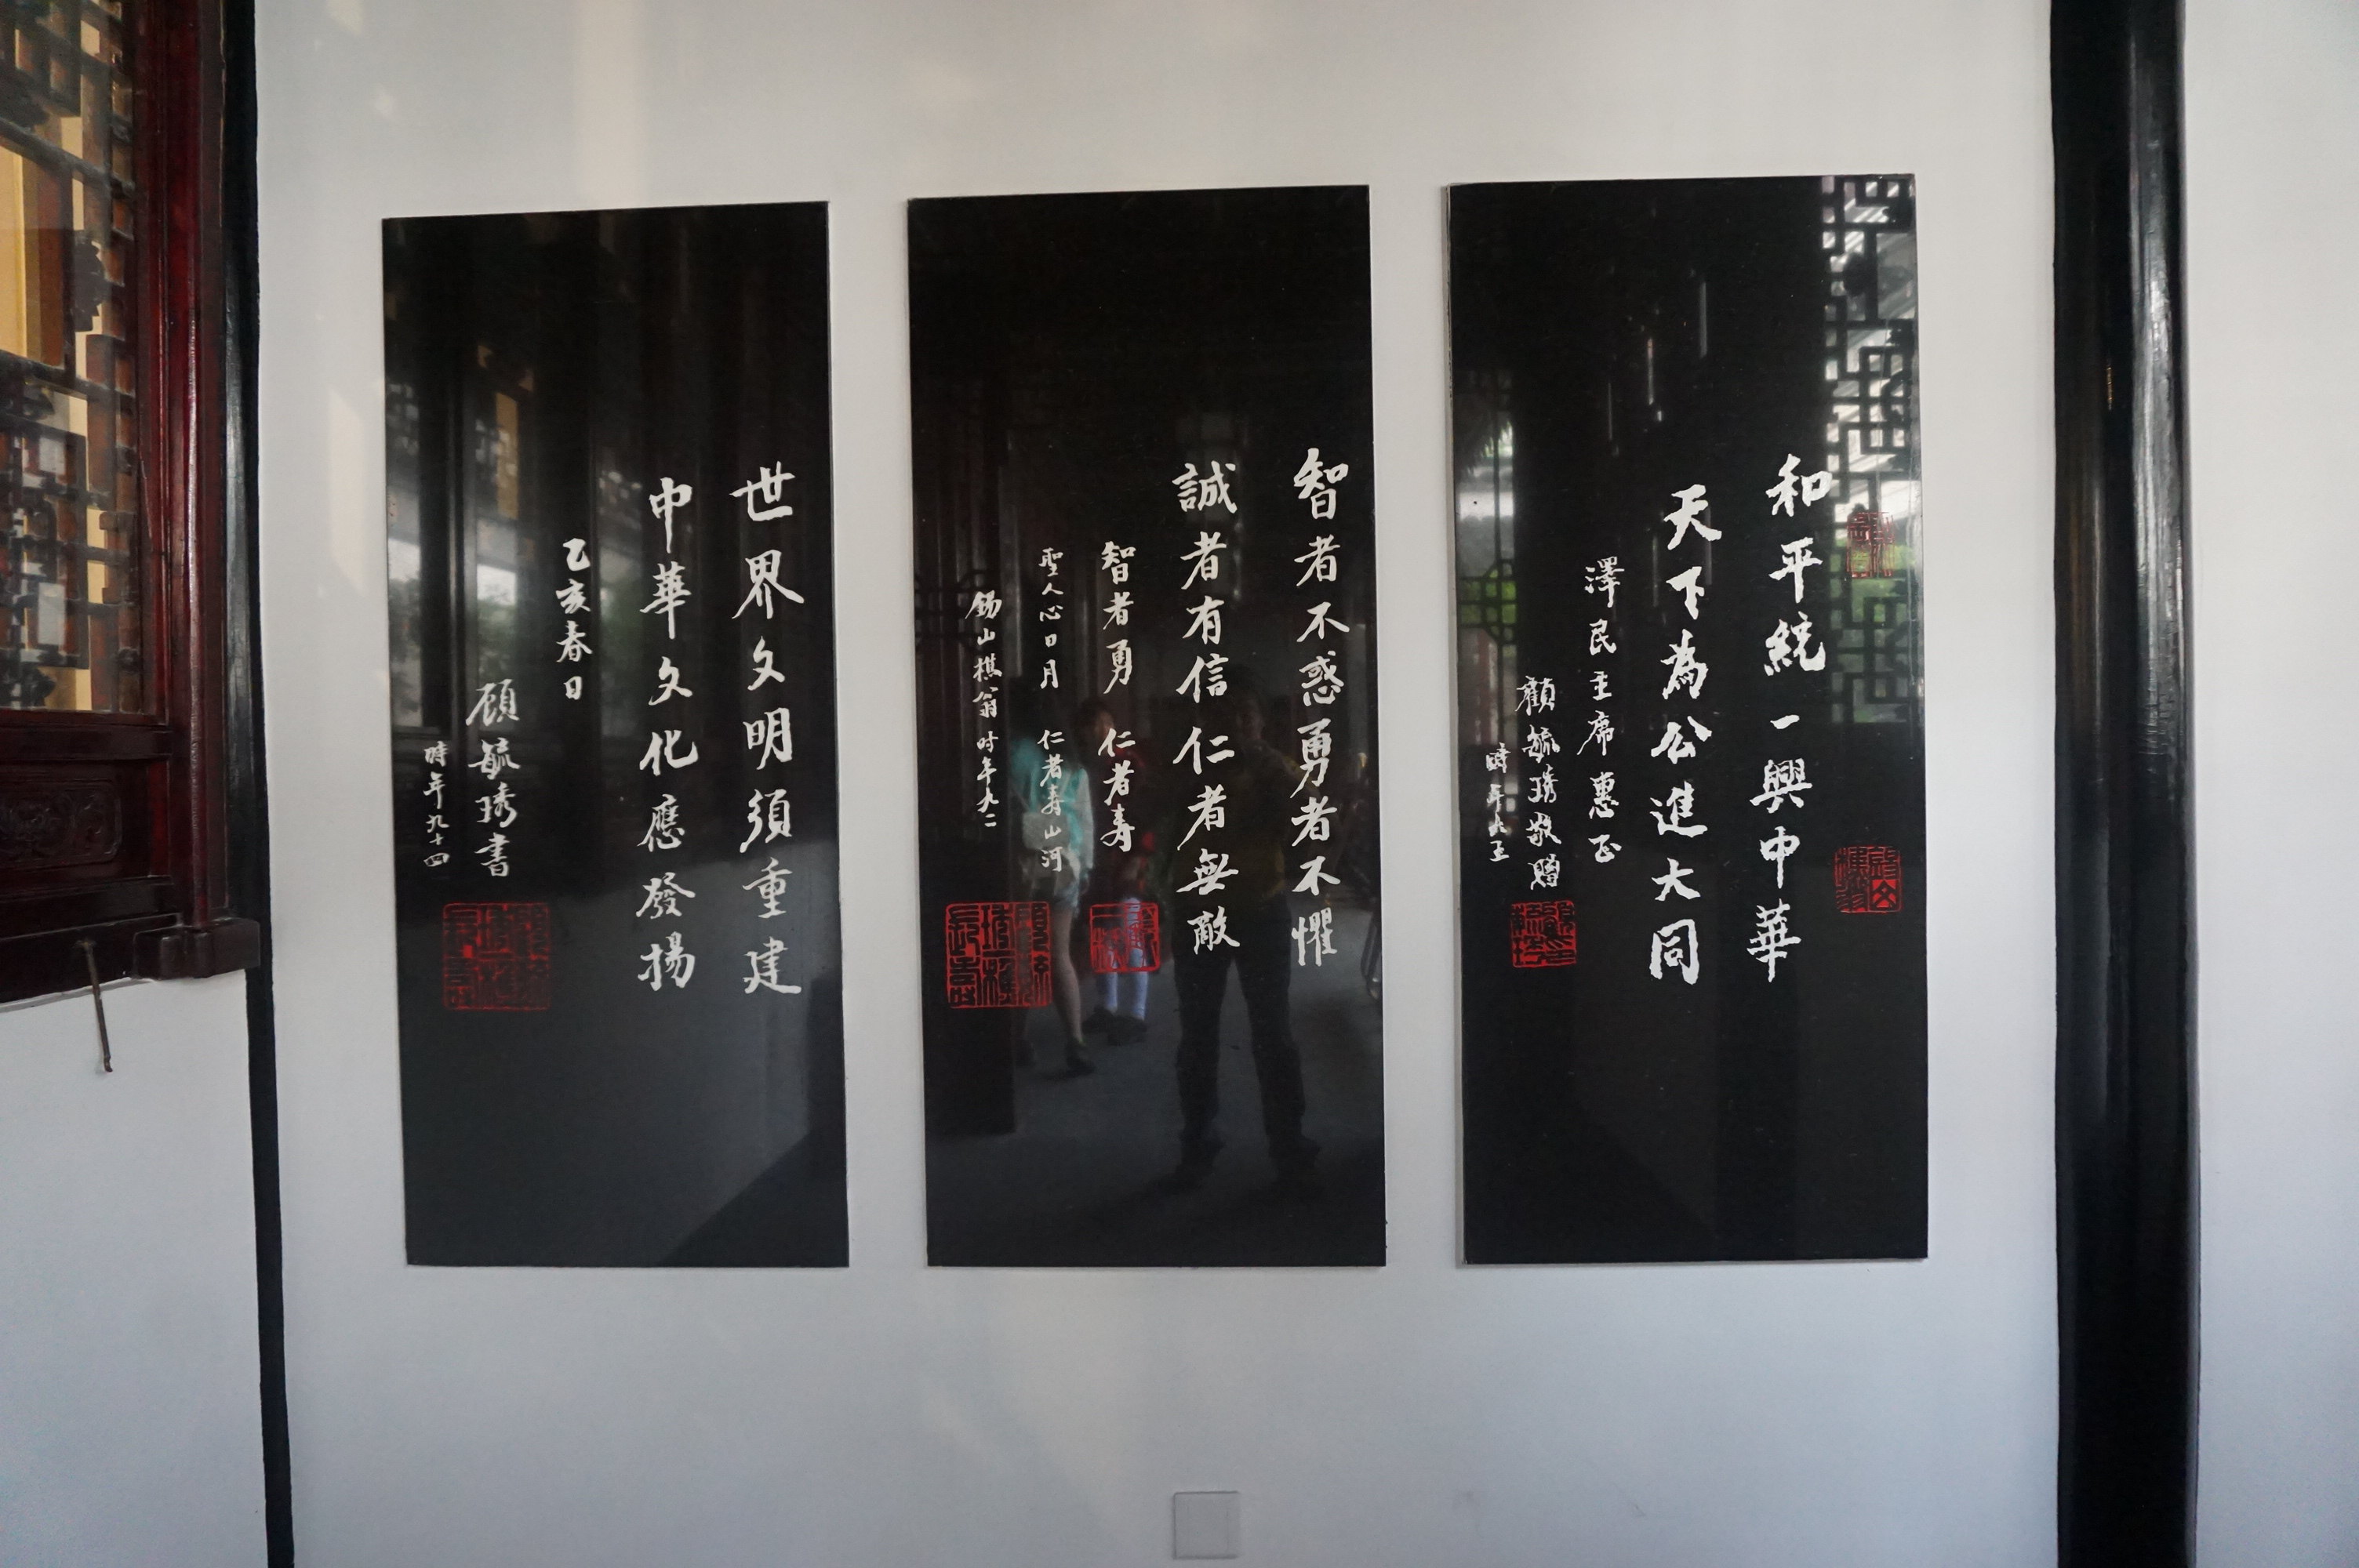 和平統一興中華
天下為公進大同
澤民主席惠正
顧毓琇敬贈
時年九五
智者不惑勇者不懼
誠者有信仁者無敵
智者勇 仁者寿
聖人心日月 仁者寿山河
錫山樵翁 时年九二
世界文明須重建
中華文化應發揚
乙亥春日
顾毓琇書
時年九十四